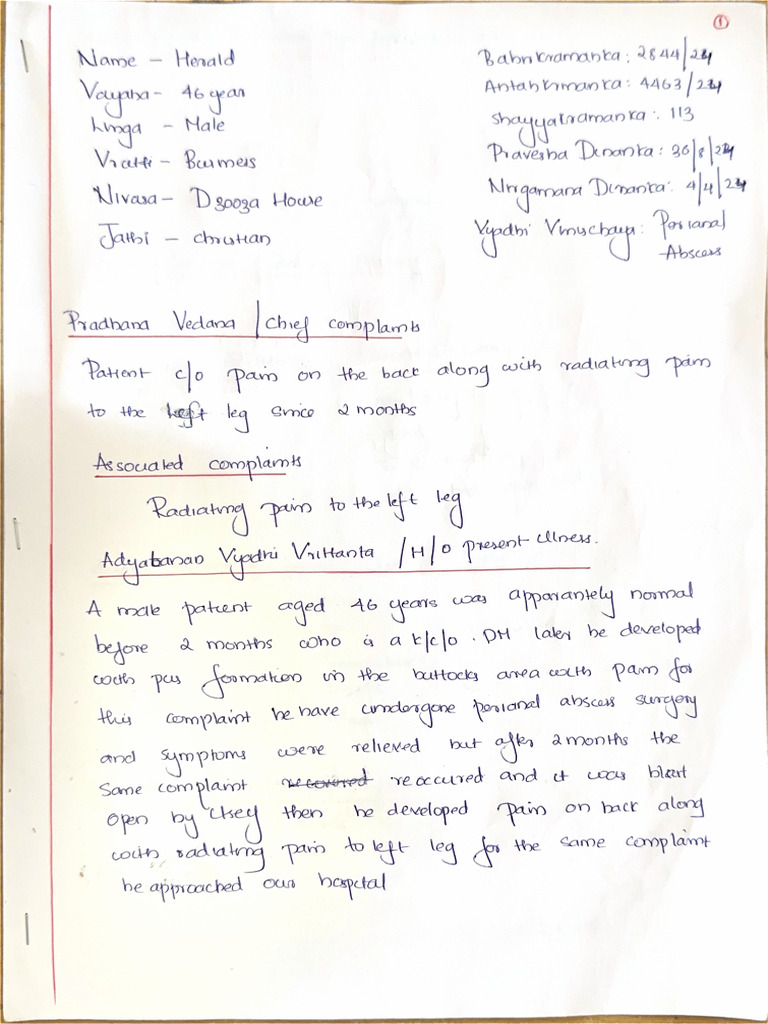 ①
Name - Herald
Vayaha - 46 year
Linga - Male
Vratti - Busines
Nivasa - Dzooza House
Jathi - Christian
Bahirkramanka: 2844/24
Antahkramanka: 4463/24
Shayyakramanka: 113
Pravesha Dinanka: 30/8/24
Nirgamana Dinanka: 4/4/24
Vyadhi Vinischaya: Perianal
Abscess
Pradhana Vedana / Chief complaints
Patient c/o pain on the back along with radiating pain
to the left leg since 2 months
Associated complaints
Radiating pain to the left leg
Adyatanan Vyadhi Vrittanta / H/O present illness.
A male patient aged 46 years was apparantely normal
before 2 months who is a k/c/o. DM later he developed
with pus formation in the buttocks area with pain for
this complaint he have undergone perianal abscess surgery
and symptoms were relieved but after 2 months the
same complaint recovered reoccured and it was
open by then he developed pain on back along
with radiating pain to left leg for the same complaint
he approached our hospital